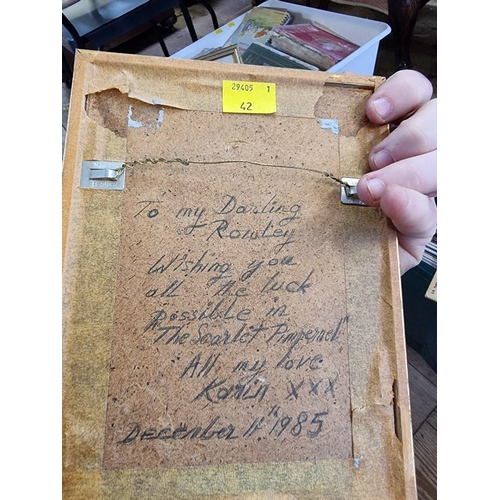 29405 1
42
To my Darling
Rowley
Wishing you
all the luck
possible in
"The Scarlet Pimpernel"
All my love
Karin XXX
December 11th 1985